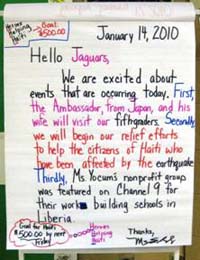 Heroes
Helping
Haiti
Goal:
$500.00
January 14, 2010
Hello Jaguars,
We are excited about
events that are occurring today. First,
the Ambassador, from Japan, and his
wife will visit our fifthgraders. Secondly,
we will begin our relief efforts
to help the citizens of Haiti who
have been affected by the earthquake.
Thirdly, Ms. Yocum's nonprofit group
was featured on Channel 9 for
their work building schools in
Liberia.
Goal for Haiti
$500.00 by next
Friday
Heroes
Helping
Haiti
Thanks,